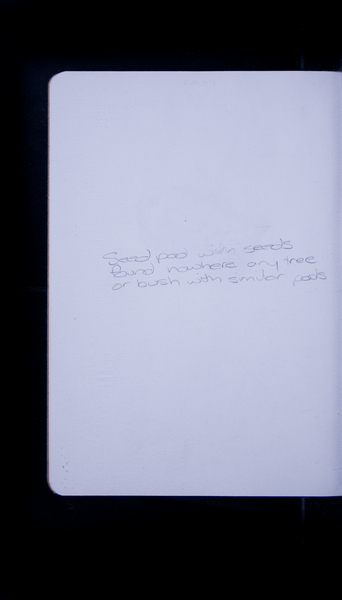 Seed pod with seeds
found nowhere any tree
or bush with similar pods